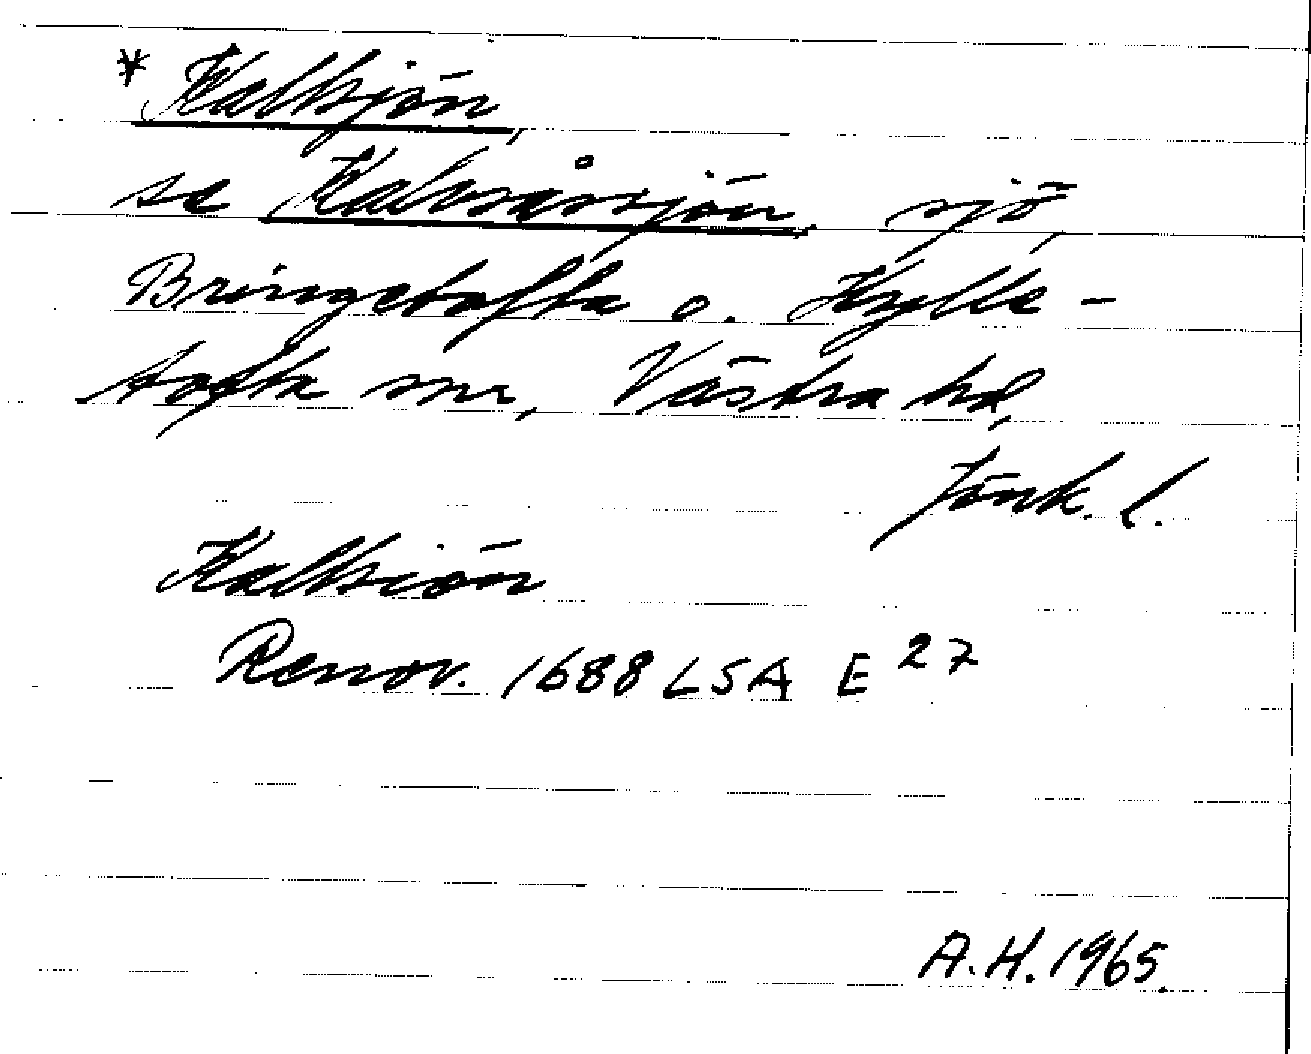 * Kalksjön,
se Kalvsåssjön, sjö,
Bringetofta o. Hylle-
tofta snr, Västra hd,
Jönk. l.
Kalksiön
Renov. 1688 LSA E 27
A.H. 1965.